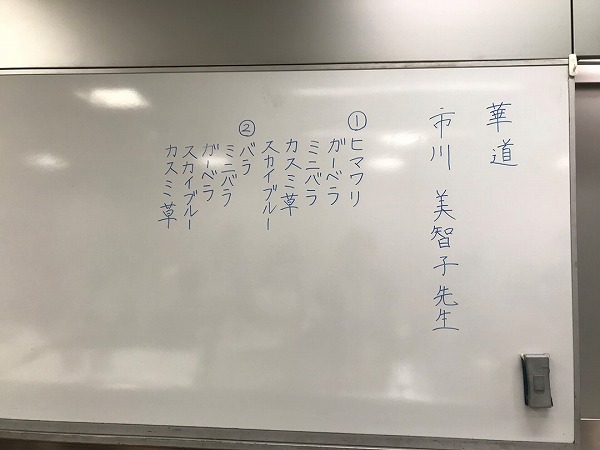 華道
市川 美智子先生
① ヒマワリ
ガーベラ
ミニバラ
カスミ草
スカイブルー
② バラ
ミニバラ
ガーベラ
スカイブルー
カスミ草